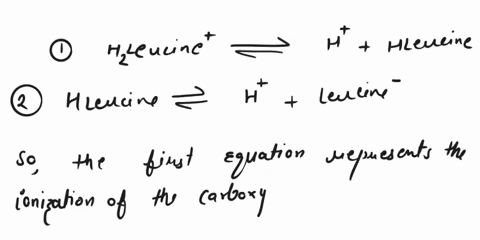 ① H₂Leucine⁺ ⇌ H⁺ + HLeucine
② HLeucine ⇌ H⁺ + Leucine⁻
So, the first equation represents the
ionization of the carboxy